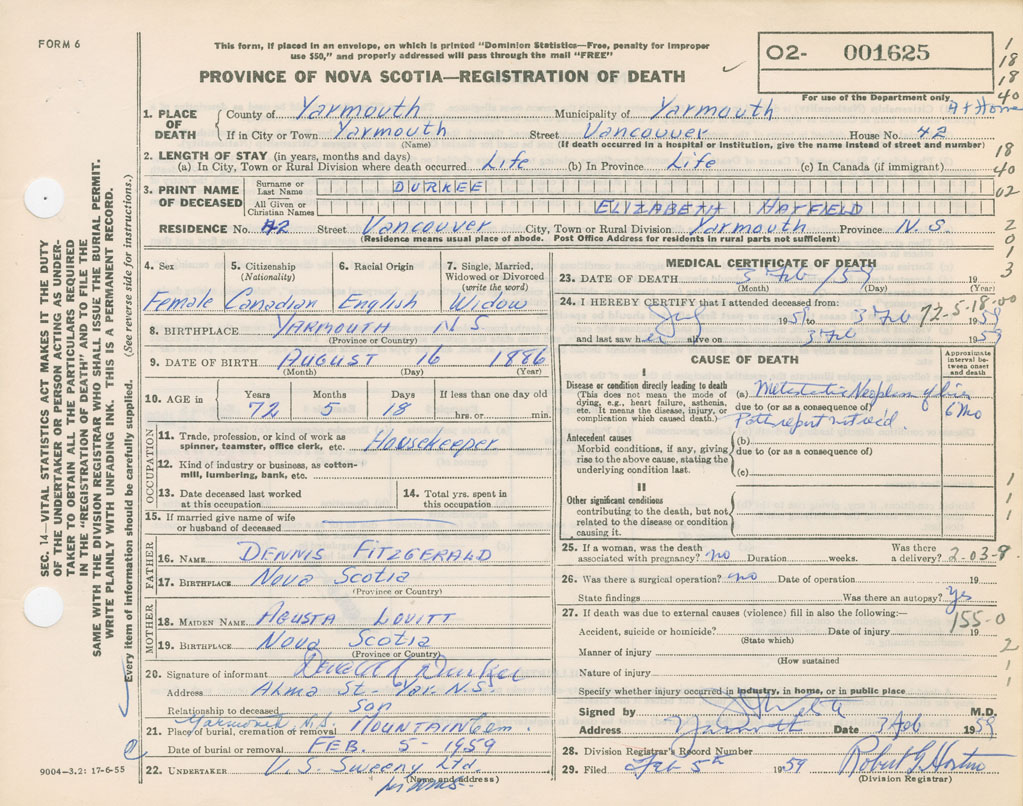 FORM 6
This form, if placed in an envelope, on which is printed "Dominion Statistics—Free, penalty for improper
use $50," and properly addressed will pass through the mail "FREE"
PROVINCE OF NOVA SCOTIA—REGISTRATION OF DEATH
02- 001625
For use of the Department only
At Home
1
18
18
40
18
40
02
2
0
1
3
SEC. 14—VITAL STATISTICS ACT MAKES IT THE DUTY
OF THE UNDERTAKER OR PERSON ACTING AS UNDER-
TAKER TO OBTAIN ALL THE PARTICULARS REQUIRED
IN THE "REGISTRATION OF DEATH" AND TO FILE THE
SAME WITH THE DIVISION REGISTRAR WHO SHALL ISSUE THE BURIAL PERMIT.
WRITE PLAINLY WITH UNFADING INK. THIS IS A PERMANENT RECORD.
Every item of information should be carefully supplied. (See reverse side for instructions.)
1. PLACE OF DEATH County of Yarmouth Municipality of Yarmouth
If in City or Town Yarmouth Street Vancouver House No. 42
(Name) (If death occurred in a hospital or institution, give the name instead of street and number)
2. LENGTH OF STAY (in years, months and days)
(a) In City, Town or Rural Division where death occurred Life (b) In Province Life (c) In Canada (if immigrant)
3. PRINT NAME OF DECEASED Surname or Last Name DURKEE
All Given or Christian Names ELIZABETH HATFIELD
RESIDENCE No. 42 Street Vancouver City, Town or Rural Division Yarmouth Province N.S.
(Residence means usual place of abode. Post Office Address for residents in rural parts not sufficient)
4. Sex 5. Citizenship (Nationality) 6. Racial Origin 7. Single, Married, Widowed or Divorced (write the word)
Female Canadian English Widow
8. BIRTHPLACE YARMOUTH N S
(Province or Country)
9. DATE OF BIRTH AUGUST 16 1886
(Month) (Day) (Year)
10. AGE in Years Months Days If less than one day old
72 5 18 hrs. or min.
OCCUPATION
11. Trade, profession, or kind of work as
spinner, teamster, office clerk, etc. Housekeeper
12. Kind of industry or business, as cotton-
mill, lumbering, bank, etc.
13. Date deceased last worked
at this occupation
14. Total yrs. spent in
this occupation
15. If married give name of wife
or husband of deceased
FATHER
16. NAME DENNIS FITZGERALD
17. BIRTHPLACE NOVA SCOTIA
(Province or Country)
MOTHER
18. MAIDEN NAME AGUSTA LOVITT
19. BIRTHPLACE NOVA SCOTIA
(Province or Country)
20. Signature of informant Donald Durkee
Address Alma St - Yar. N.S.
Relationship to deceased Son
21. Place of burial, cremation or removal Yarmouth N.S. MOUNTAIN Cem.
Date of burial or removal FEB. 5 - 1959
22. UNDERTAKER V. S. Sweeny Ltd.
(Name and address)
9004—3.2: 17-6-55
MEDICAL CERTIFICATE OF DEATH
23. DATE OF DEATH 3 Feb /59 19
(Month) (Day) (Year)
24. I HEREBY CERTIFY that I attended deceased from:
1958 to 3 Feb 1959
72-5-18-00
and last saw her alive on 3 Feb 1959
CAUSE OF DEATH
Approximate interval between onset and death
I
Disease or condition directly leading to death
(This does not mean the mode of
dying, e.g., heart failure, asthenia,
etc. It means the disease, injury, or
complication which caused death.)
(a) Metastatic Neoplasm of 6 Mo
due to (or as a consequence of)
Path report not
Antecedent causes
Morbid conditions, if any, giving
rise to the above cause, stating the
underlying condition last.
(b)
due to (or as a consequence of)
(c)
II
Other significant conditions
contributing to the death, but not
related to the disease or condition
causing it.
1
1
1
25. If a woman, was the death
associated with pregnancy? no Duration weeks. Was there
a delivery? 2-03-9
26. Was there a surgical operation? no Date of operation 19
State findings Was there an autopsy? Yes
27. If death was due to external causes (violence) fill in also the following:—
155-0
Accident, suicide or homicide? Date of injury 19
(State which)
Manner of injury 2
(How sustained
Nature of injury 1
Specify whether injury occurred in industry, in home, or in public place 1
Signed by M.D.
Address Yarmouth Date 3 Feb 1959
28. Division Registrar's Record Number
29. Filed Feb 5th 1959 Robert G Horton
(Division Registrar)